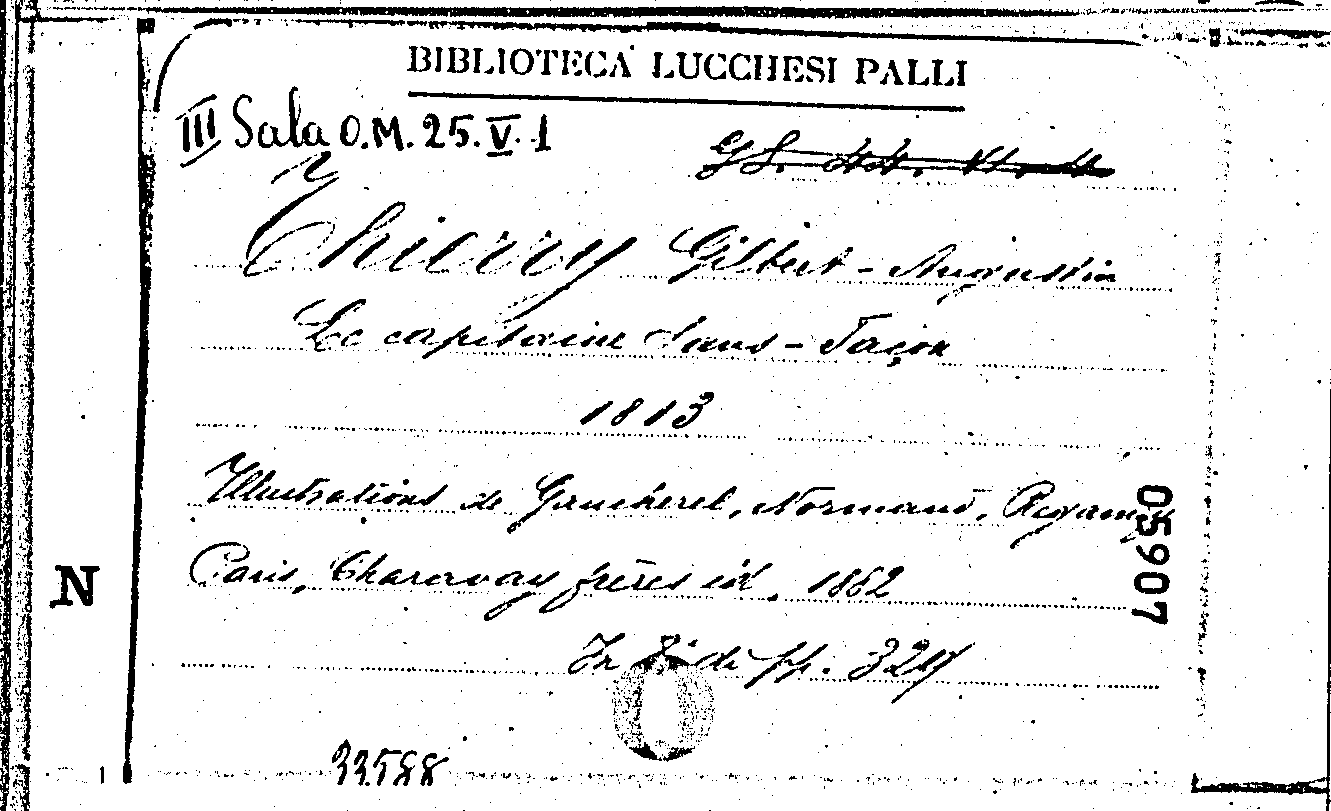 BIBLIOTECA LUCCHESI PALLI
III Sala O.M. 25. V. 1
Thierry Gilbert-Augustin
Le capitaine Sans-Façon
1813
Illustrations de Gaucherel, Normand, Regamey
Paris, Charavay frères éd, 1862
In 8° di pp. 324
33588
N
05907